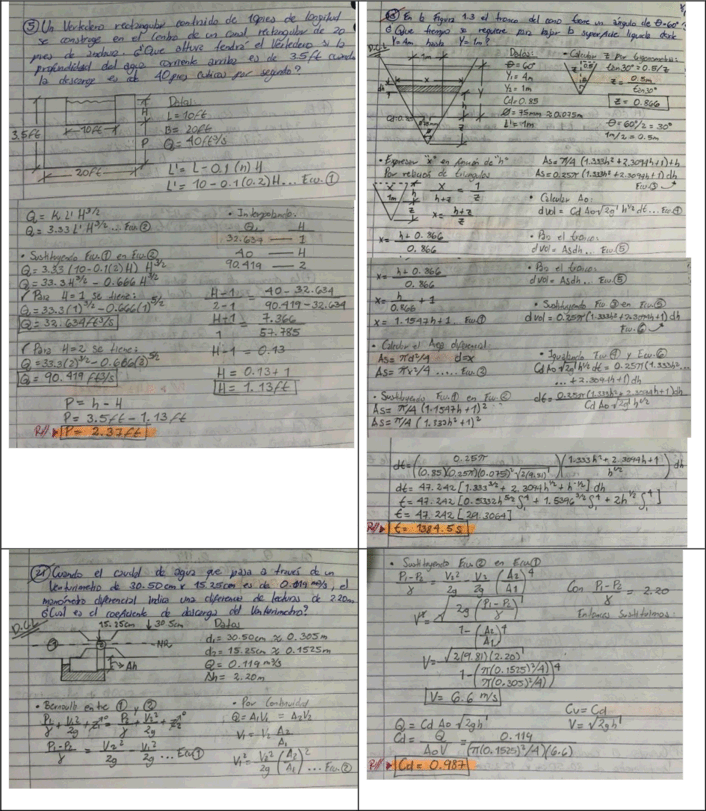 ⑤ Un Vertedero rectangular contraido de 10pies de longitud
se construye en el centro de un canal rectangular de 20
pies de ancho. ¿Que altura tendrá el Vertedero si la
profundidad del agua corriente arriba es de 3.5ft cuando
la descarga es de 40 pies cubicos por segundo?
3.5ft
10ft
20ft
H
P
Datos
L = 10ft
B = 20ft
Q = 40ft³/s
L' = L - 0.1 (n) H
L' = 10 - 0.1 (0.2) H... Ecu. ①
Q = K L' H^3/2
Q = 3.33 L' H^3/2 ... Ecu. ②
• Sustituyendo Ecu ① en Ecu ②
Q = 3.33 (10 - 0.1(2) H) H^3/2
Q = 33.3 H^3/2 - 0.666 H^5/2
✓ Para H=1 se tiene:
Q = 33.3(1)^3/2 - 0.666(1)^5/2
Q = 32.634 ft³/s
✓ Para H=2 se tiene:
Q = 33.3(2)^3/2 - 0.666(2)^5/2
Q = 90.419 ft³/s
P = h - H
P = 3.5ft - 1.13ft
R// P = 2.37ft
• Interpolando.
Q — H
32.634 — 1
40 — H
90.419 — 2
H-1 / 2-1 = 40 - 32.634 / 90.419 - 32.634
H-1 / 1 = 7.366 / 57.785
H - 1 = 0.13
H = 0.13 + 1
H = 1.13ft
En la Figura 1.3 el tronco del cono tiene un ángulo de θ=60°
¿Que tiempo se requiere para bajar la superficie liquida desde
Y=4m hasta Y=1m?
Datos:
θ = 60°
Y₁ = 4m
Y₂ = 1m
Cd = 0.85
Ø = 75mm ≈ 0.075m
L' = 1m
• Calcular z por trigonometria:
tan 30° = 0.5/z
z = 0.5m / tan 30°
z = 0.866
θ = 60°/2 = 30°
1m/2 = 0.5m
• Expresar "x" en función de "h"
Por relacion de triangulos
x / h+z = 1 / z
x = h+z / z
As = π/4 (1.333h² + 2.3094h + 1)
As = 0.25π (1.333h² + 2.3094h + 1)
Ecu ③
• Calcular Ao:
d vol = Cd Ao √2g h^1/2 dt ... Ecu ④
x = h + 0.866 / 0.866
• Por el tronco:
d vol = As dh .. Ecu ⑤
x = h + 0.866 / 0.866
x = h / 0.866 + 1
x = 1.1547h + 1. Ecu ①
• Calcular el Asp diferencial:
As = πd²/4 d=x
As = πx²/4 ..... Ecu. ②
• Sustituyendo Ecu ① en Ecu ②
As = π/4 (1.1547h + 1)²
• Por el tronco:
d vol = As dh .. Ecu ⑤
• Sustituyendo Ecu ③ en Ecu ⑤
d vol = 0.25π (1.333h² + 2.3094h + 1) dh
Ecu. ⑥
• Igualando Ecu ④ y Ecu. ⑥
Cd Ao √2g h^1/2 dt = 0.25π (1.333h²...
... + 2.3094h + 1) dh
dt = 0.25π (1.333h² + 2.3094h + 1) dh / Cd Ao √2g h^1/2
dt = (0.25π / (0.85)(0.25π)(0.075)² √2(9.81)) (1.333h² + 2.3094h + 1 / h^1/2) dh
dt = 47.242 [1.333^3/2 + 2.3094h^1/2 + h^-1/2] dh
t = 47.242 [0.5332h^5/2 ∫₁⁴ + 1.5396^3/2 ∫₁⁴ + 2h^1/2 ∫₁⁴]
t = 47.242 [29.3064]
R// t = 1384.5 s
Cuando el caudal de agua que pasa a través de un
Venturimetro de 30.50cm x 15.25cm es de 0.119 m³/s, el
manómetro diferencial indica una diferencia de lecturas de 2.20m,
¿Cual es el coeficiente de descarga del Venturimetro?
15.25cm
30.5cm
NR
Δh
Datos
d₁ = 30.50cm ≈ 0.305m
d₂ = 15.25cm ≈ 0.1525m
Q = 0.119 m³/s
Δh = 2.20m
• Bernoulli entre ① y ②
P₁/γ + V₁²/2g + Z₁ = P₂/γ + V₂²/2g + Z₂
P₁-P₂/γ = V₂²/2g - V₁²/2g ... Ecu ①
• Por Continuidad
Q = A₁V₁ = A₂V₂
V₁ = V₂ A₂/A₁
V₁² = V₂²/2g (A₂/A₁)² ... Ecu. ②
• Sustituyendo Ecu ② en Ecu ①
P₁-P₂/γ = V₂²/2g - V₂²/2g (A₂/A₁)⁴
V = √2g (P₁-P₂/γ) / 1-(A₂/A₁)⁴
Con P₁-P₂/γ = 2.20
Entonces Sustituimos:
V = √2(9.81)(2.20) / 1-(π(0.1525)²/4 / π(0.305)²/4)⁴
V = 6.6 m/s
Cv = Cd
V = √2gh
Q = Cd Ao √2gh
Cd = Q / AoV = 0.119 / (π(0.1525)²/4)(6.6)
R// Cd = 0.987